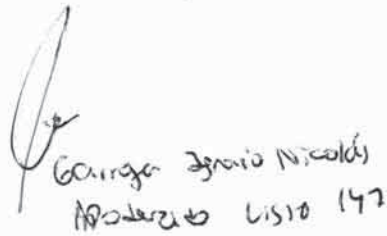 Ignacio Nicolás
Apoderado Lista 147